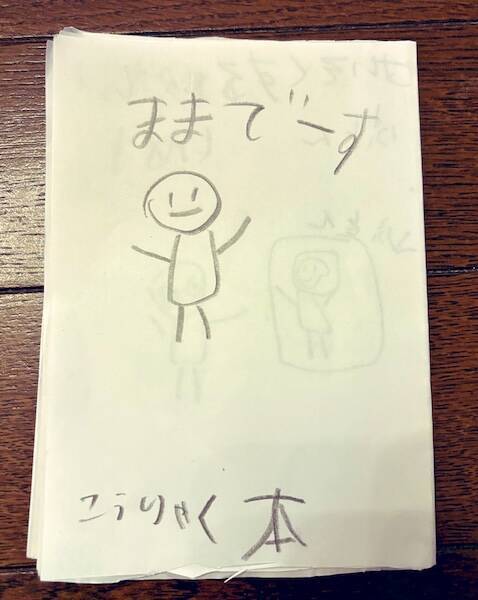 ままでーす
こうりゃく本